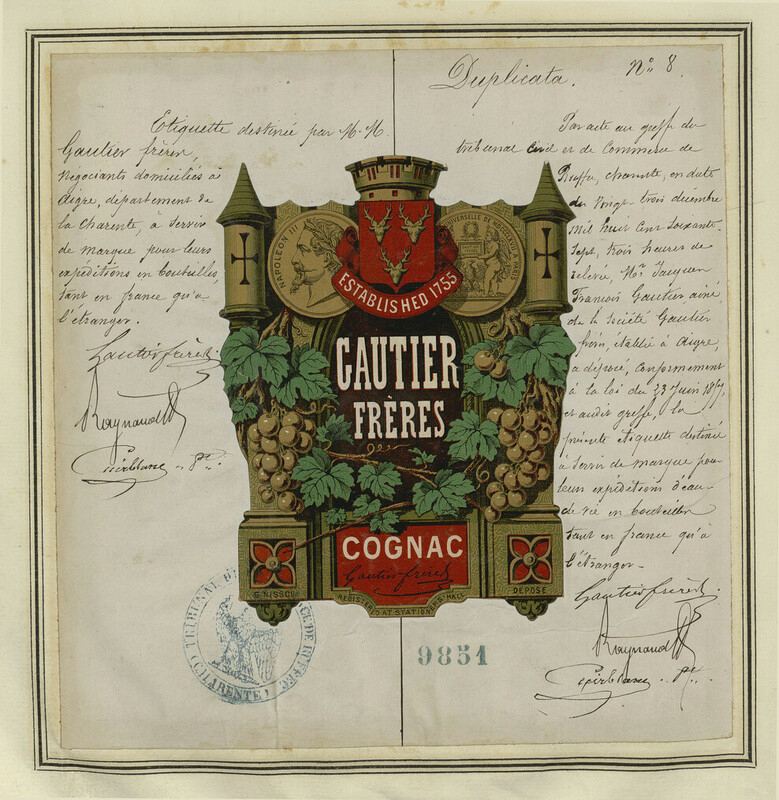 Duplicata. N° 8.
Etiquette destinée par M. M.
Gautier frères,
Négociants domiciliés à
Aigre, département de
la Charente, à servir
de marque pour leurs
expéditions en bouteilles,
tant en france qu'à
l'étranger.
Gautier frères
Raynaud
Par acte au greffe du
tribunal civil et de Commerce de
Ruffec, charente, en date
du vingt trois décembre
mil huit cent soixante
sept, trois heures de
relevée, Mr Jacques
François Gautier ainé,
de la société Gautier
frères, établie à Aigre,
a déposé, conformément
à la loi du 23 Juin 1857,
et audit greffe, la
présente étiquette destinée
à servir de marque pour
leurs expéditions d'eau
de vie en bouteilles
tant en france qu'à
l'étranger.
Gautier frères
Raynaud
NAPOLEON III
UNIVERSELLE DE MDCCCLXVII A PARIS
ESTABLISHED 1755
GAUTIER
FRÈRES
COGNAC
Gautier frères
G. NISSOU
DÉPOSÉ
REGISTERED AT STATIONERS' HALL
TRIBUNAL DE RUFFEC
(CHARENTE)
9851